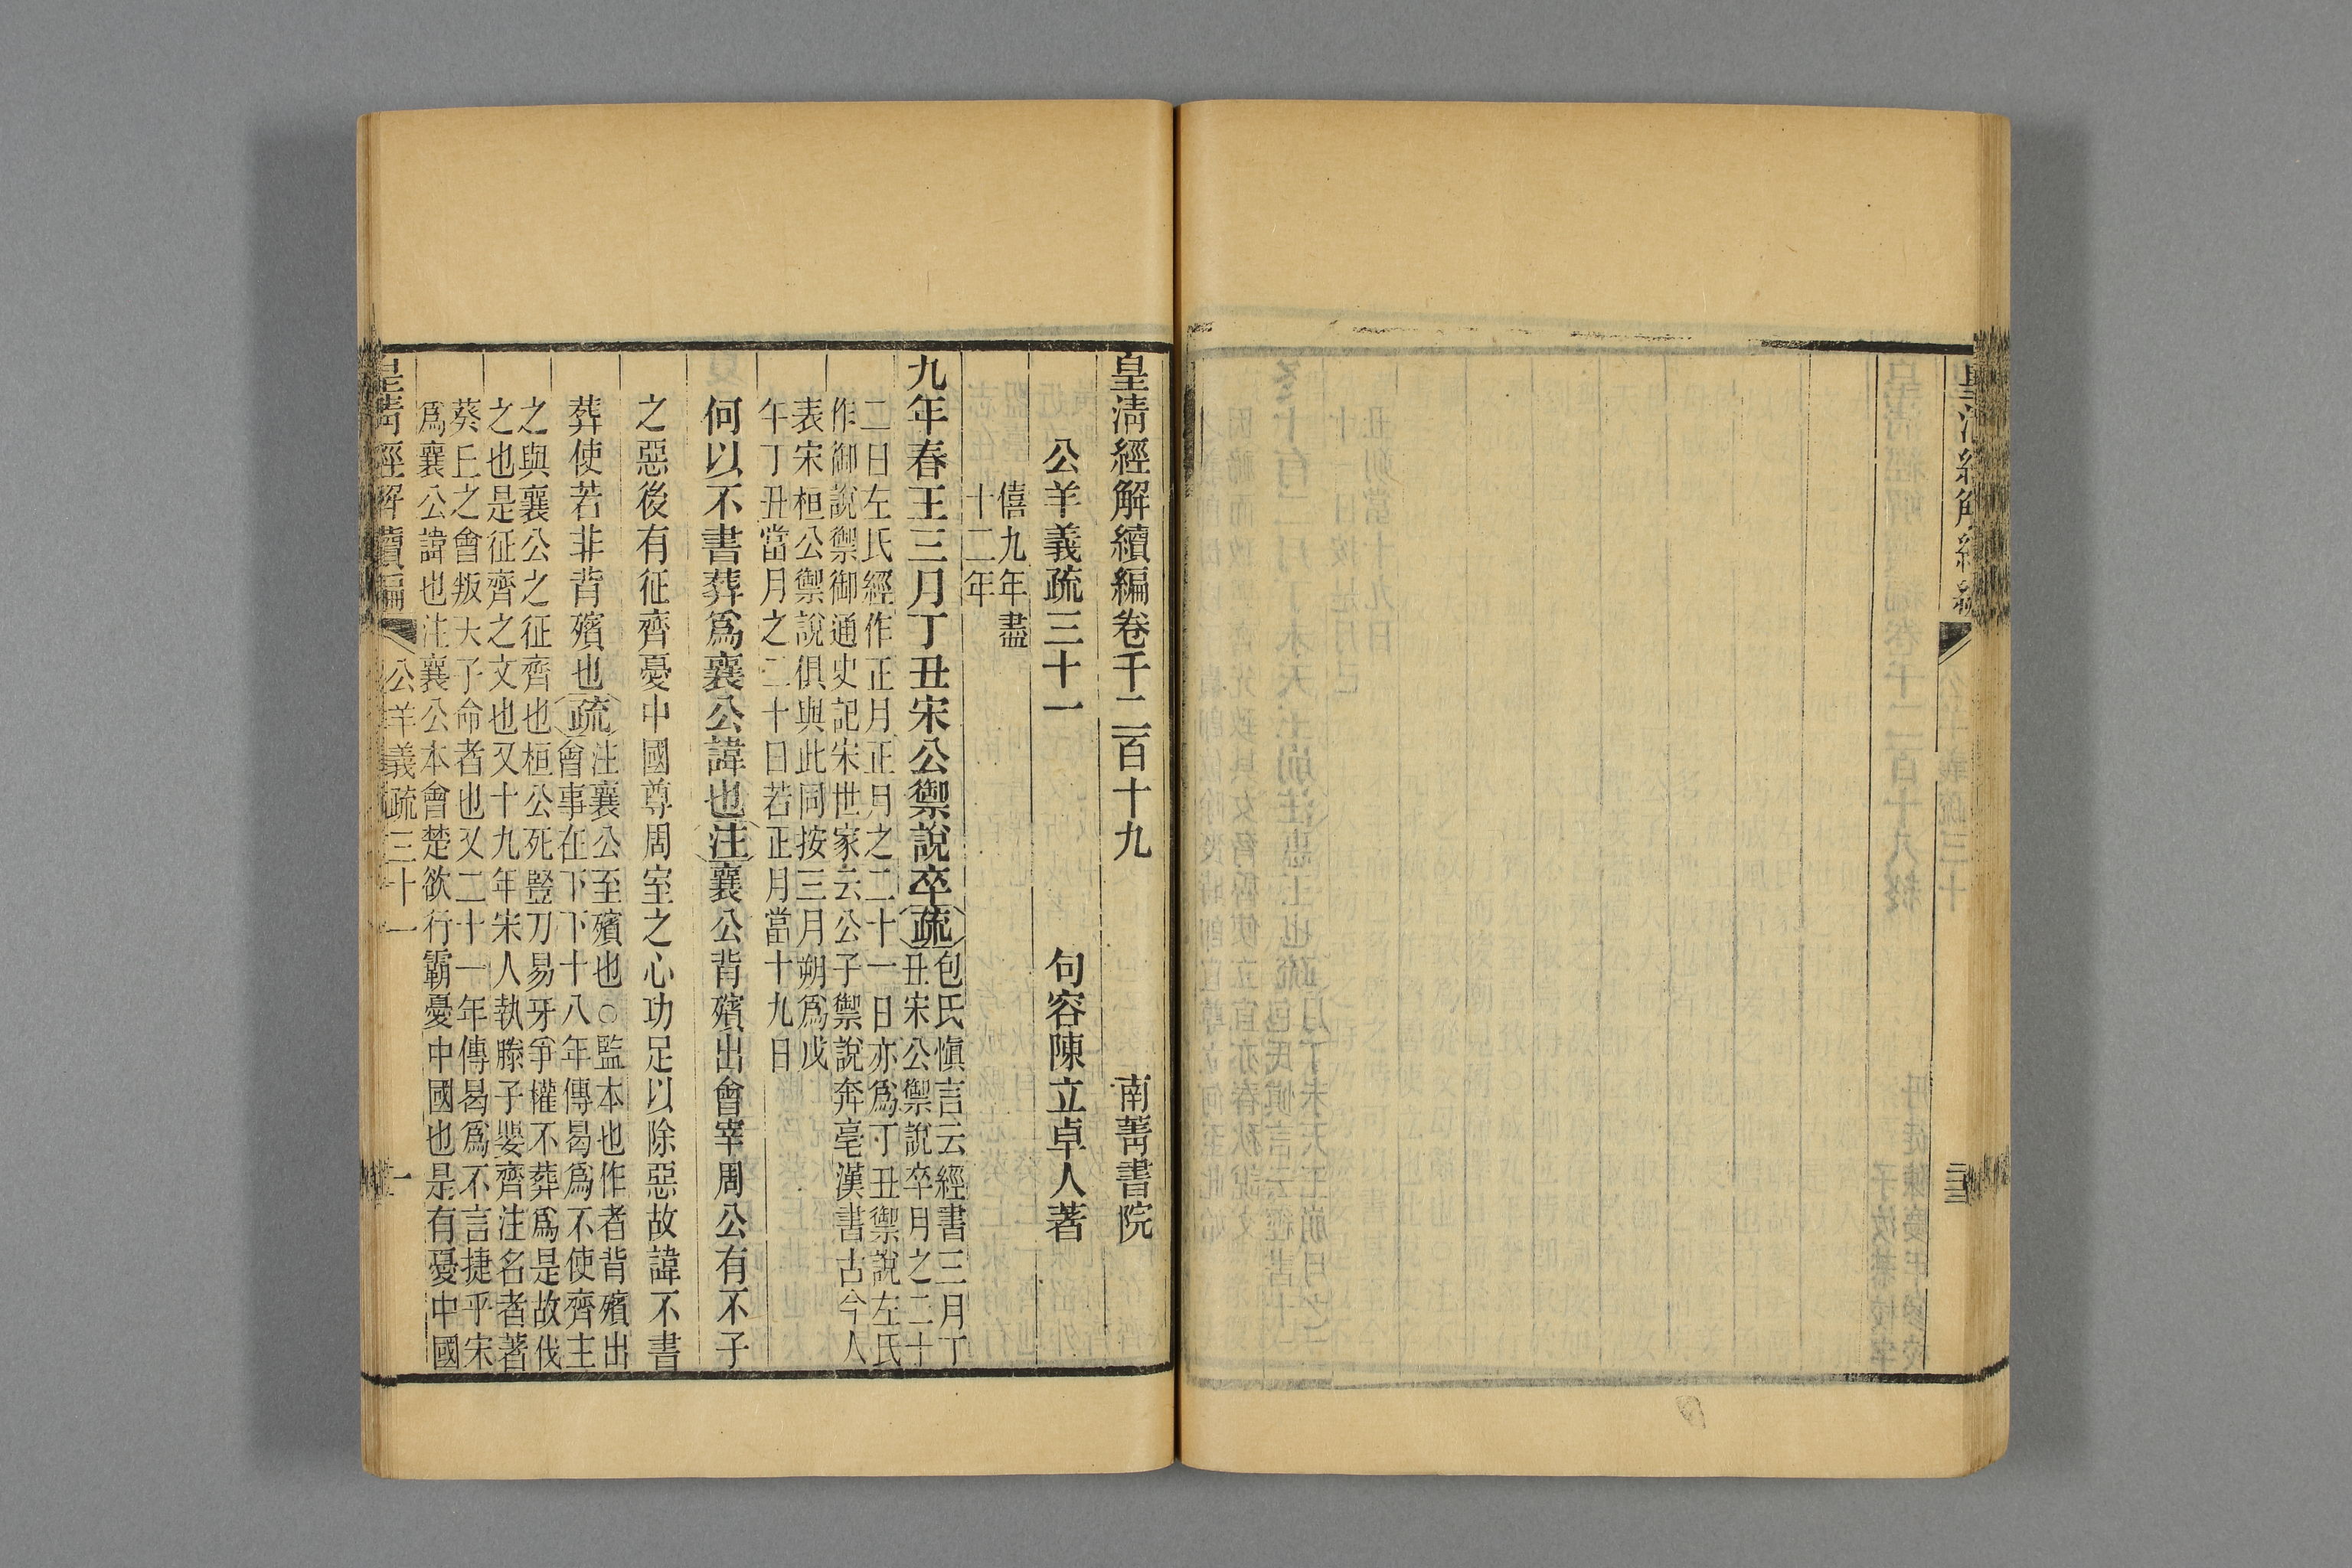 皇清經解續編卷千二百十九　南菁書院
公羊義疏三十一　句容陳立卓人著
僖九年盡
十二年
九年春王三月丁丑宋公禦說卒疏包氏愼言云經書三月丁
丑宋公禦說卒月之二十
二日左氏經作正月正月之二十一日亦爲丁丑禦說左氏
作御說禦御通史記宋世家云公子禦說奔亳漢書古今人
表宋桓公禦說俱與此同按三月朔爲戊
午丁丑當月之二十日若正月當十九日
何以不書葬爲襄公諱也注襄公背殯出會宰周公有不子
之惡後有征齊憂中國尊周室之心功足以除惡故諱不書
葬使若非背殯也疏注襄公至殯也○監本也作者背殯出
會事在下下十八年傳曷爲不使齊主
之與襄公之征齊也桓公死豎刀易牙爭權不葬爲是故伐
之也是征齊之文也又十九年宋人執滕子嬰齊注名者著
葵丘之會叛天子命者也又二十一年傳曷爲不言捷乎宋
爲襄公諱也注襄公本會楚欲行霸憂中國也是有憂中國
皇清經解續編　公羊義疏三十一　一